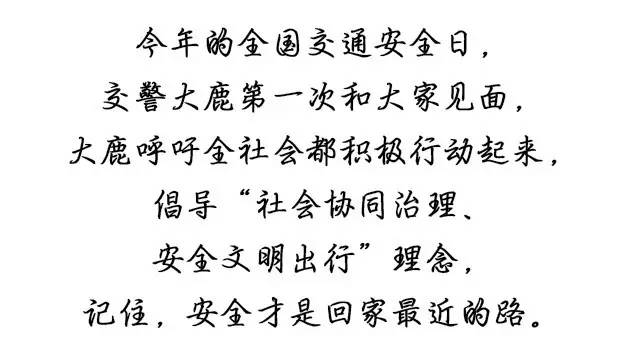 今年的全国交通安全日，
交警大鹿第一次和大家见面，
大鹿呼吁全社会都积极行动起来，
倡导“社会协同治理、
安全文明出行”理念，
记住，安全才是回家最近的路。